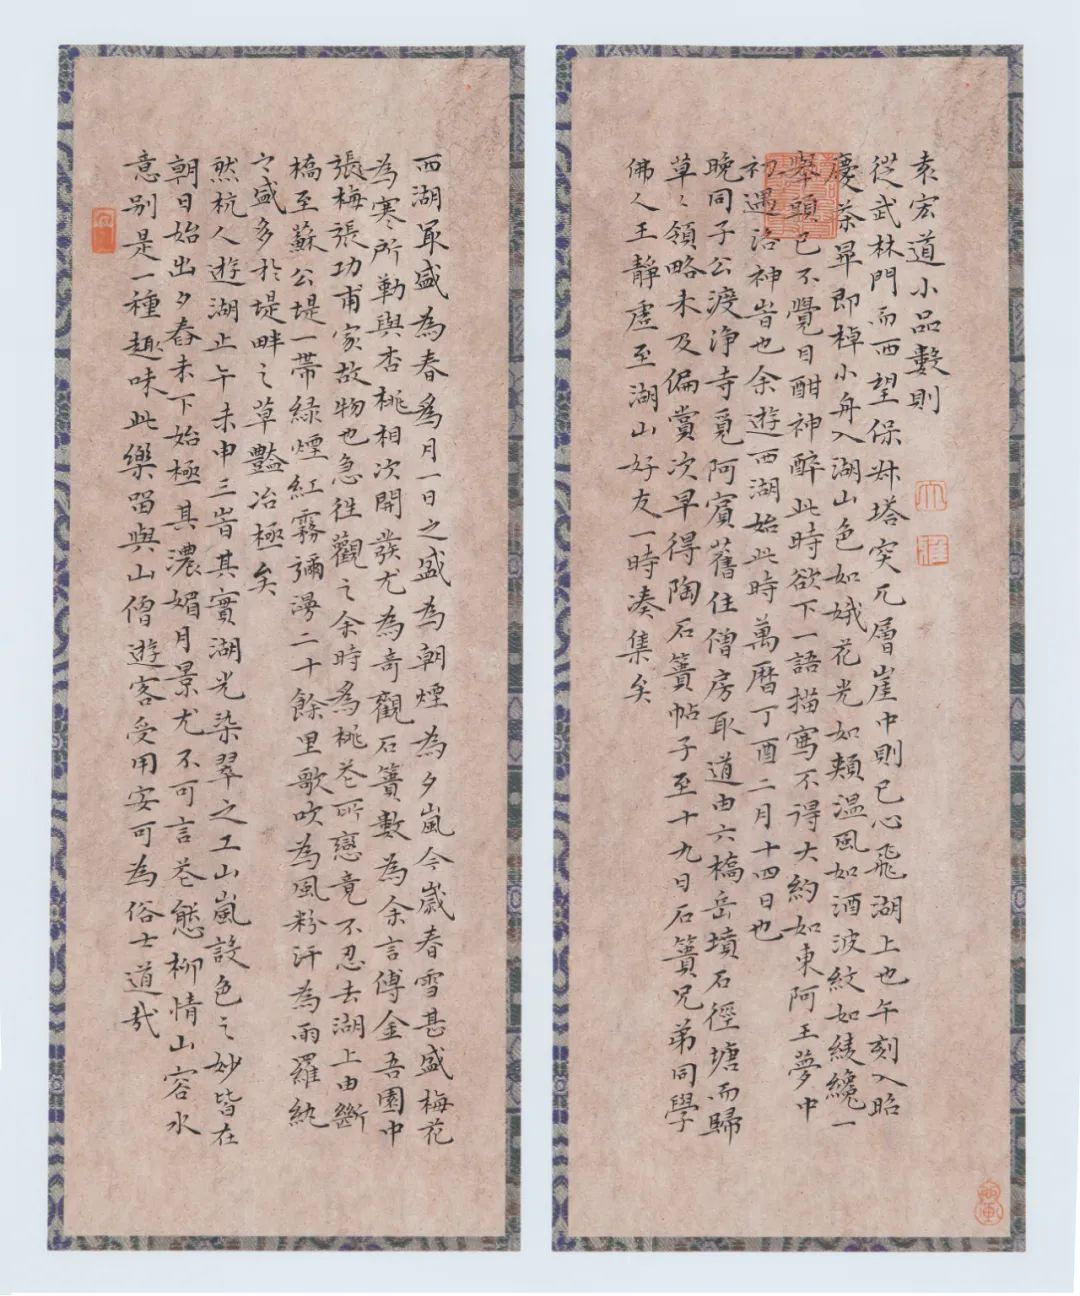 袁宏道小品數則
從武林門而西望保叔塔突兀層崖中則已心飛湖上也午刻入昭
慶茶畢即棹小舟入湖山色如娥花光如頰溫風如酒波紋如綾纔一
舉頭已不覺目酣神醉此時欲下一語描寫不得大約如東阿王夢中
初遇洛神時也余遊西湖始此時萬曆丁酉二月十四日也
晚同子公渡淨寺覓阿賓舊住僧房取道由六橋岳墳石徑塘而歸
草々領略未及偏賞次早得陶石簣帖子至十九日石簣兄弟同學
佛人王靜虛至湖山好友一時湊集矣
西湖最盛為春為月一日之盛為朝煙為夕嵐今歲春雪甚盛梅花
為寒所勒與杏桃相次開發尤為奇觀石簣數為余言傅金吾園中
張梅張功甫家故物也急往觀之余時為桃花所戀竟不忍去湖上由斷
橋至蘇公堤一帶綠煙紅霧彌漫二十餘里歌吹為風粉汗為雨羅紈
之盛多於堤畔之草豔冶極矣
然杭人遊湖止午未申三時其實湖光染翠之工山嵐設色之妙皆在
朝日始出夕舂未下始極其濃媚月景尤不可言花態柳情山容水
意別是一種趣味此樂留與山僧遊客受用安可為俗士道哉